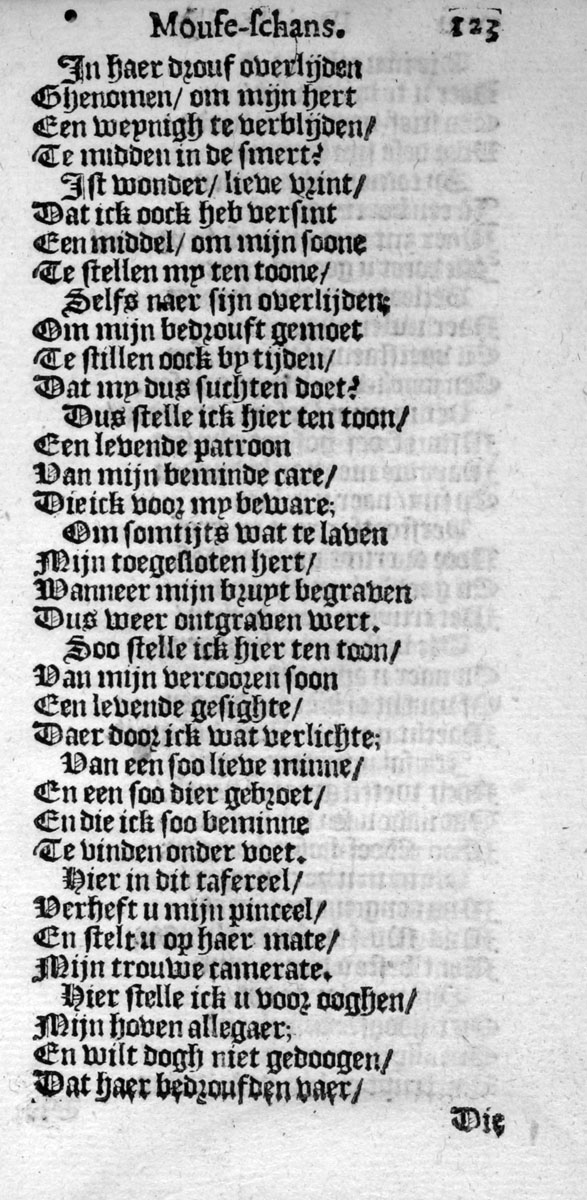 Mouse-schans. 123
In haer drouf overlijden
Ghenomen/ om mijn hert
Een weynigh te verblijden/
Te midden in de smert?
Ist wonder/ lieve vrint/
Dat ick oock heb versint
Een middel/ om mijn soone
Te stellen my ten toone/
Selfs naer sijn overlijden;
Om mijn bedrouft gemoet
Te stillen oock by tijden/
Dat my dus suchten doet?
Dus stelle ick hier ten toon/
Een levende patroon
Van mijn beminde care/
Die ick voor my beware;
Om somtijts wat te laven
Mijn toegesloten hert/
Wanneer mijn bruyt begraven
Dus weer ontgraven wert.
Soo stelle ick hier ten toon/
Van mijn vercooren soon
Een levende gesighte/
Daer door ick wat verlichte;
Van een soo lieve minne/
En een soo dier gebroet/
En die ick soo beminne
Te vinden onder voet.
Hier in dit tafereel/
Verheft u mijn pinceel/
En stelt u op haer mate/
Mijn trouwe camerate.
Hier stelle ick u voor ooghen/
Mijn hoven allegaer;
En wilt dogh niet gedoogen/
Dat haer bedroufden vaer/
Die